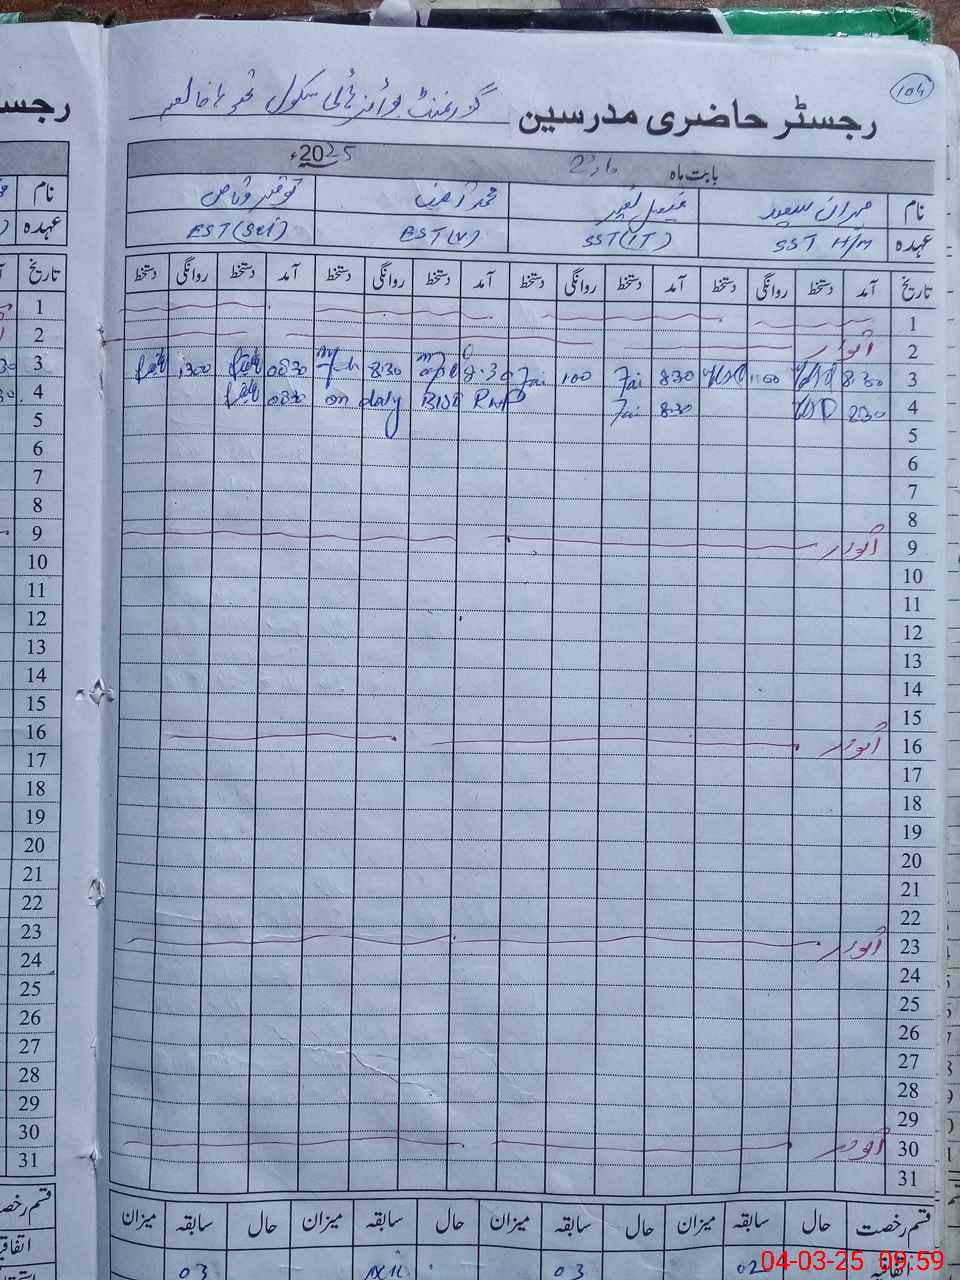 104
رجسٹر حاضری مدرسین گورنمنٹ بوائز ہائی سکول
بابت ماہ مارچ 2025ء
نام مہران سعید فیصل محمد توقیر وقاص
عہدہ SST H/M SST (IT) EST (V) EST (Sci)
تاریخ آمد دستخط روانگی دستخط آمد دستخط روانگی دستخط آمد دستخط روانگی دستخط آمد دستخط روانگی دستخط
1
2 اتوار
3 8:30 1:00 8:30 1:00 8:30 8:30 0830 1300
4 8:30 8:30 on duty BISE RWP 0830
5
6
7
8
9 اتوار
10
11
12
13
14
15
16 اتوار
17
18
19
20
21
22
23 اتوار
24
25
26
27
28
29
30 اتوار
31
قسم رخصت حال سابقہ میزان حال سابقہ میزان حال سابقہ میزان حال سابقہ میزان
اتفاقیہ 02 03 03
رجسٹر
نام
عہدہ
تاریخ
1
2
3
4
5
6
7
8
9
10
11
12
13
14
15
16
17
18
19
20
21
22
23
24
25
26
27
28
29
30
31
قسم رخصت
04-03-25 09:59